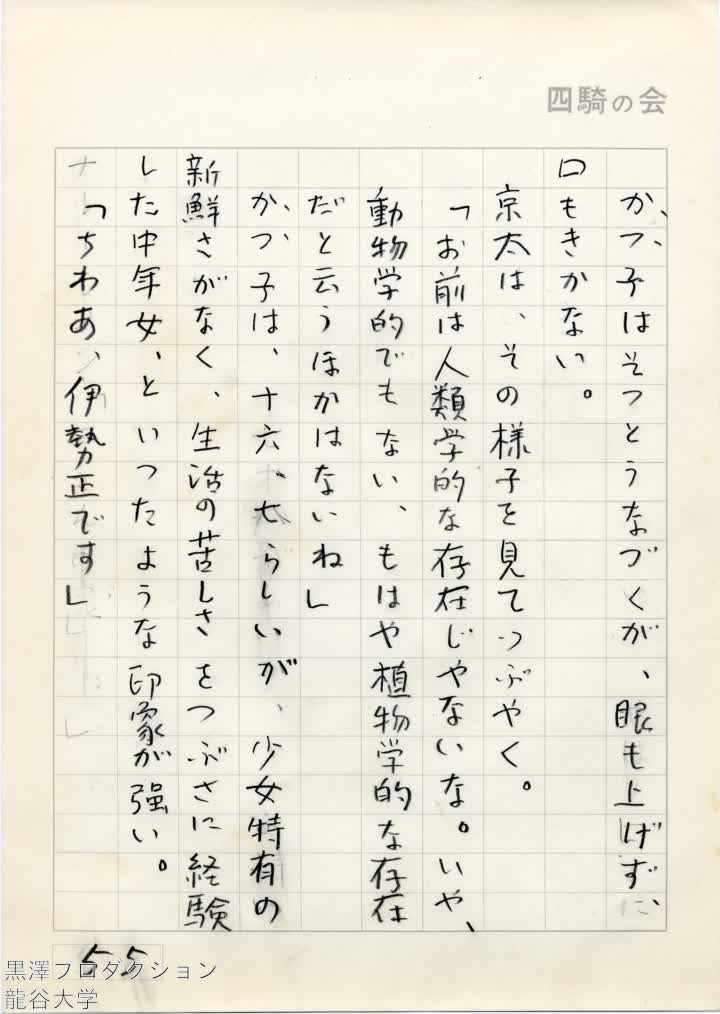 四騎の会
かつ子はそつとうなづくが、眼も上げずに、
口もきかない。
京太は、その様子を見てつぶやく。
「お前は人類学的な存在じやないな。いや、
動物学的でもない、もはや植物学的な存在
だと云うほかはないね」
かつ子は、十六、七らしいが、少女特有の
新鮮さがなく、生活の苦しさをつぶさに経験
した中年女、といつたような印象が強い。
「ちわあ、伊勢正です」
55
黒澤プロダクション
龍谷大学